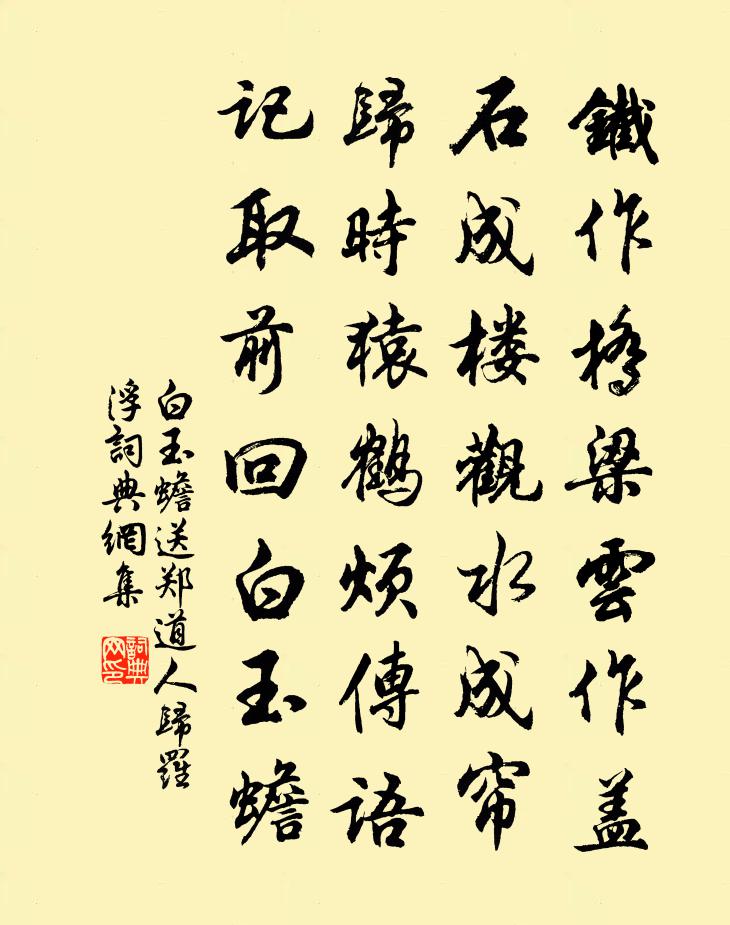 鐵作橋梁雲作盖
石成楼觀水成帘
歸時猿鶴烦傳语
记取前回白玉蟾
白玉蟾送郑道人歸羅
浮詞典網集
詞典
网印